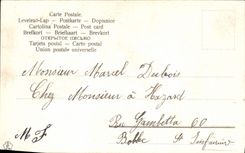 Carte Postale
Levelező-Lap — Postkarte — Dopisnice
Cartolina Postale — Post card
Brefkort — Briefkaart — Brevkort
ОТКРЫТОЕ ПИСЬМО
Tarjeta postal — Carte postal
Union postale universelle
Monsieur Marcel Dubois
Chez Monsieur A Hazard
Rue Gambetta 60
M F
Bolbec Sne Inférieure